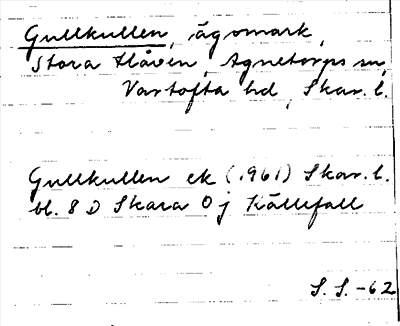 Gullkullen, ägomark,
Stora Håven, Agnetorps sn,
Vartofta hd, Skar. l.
Gullkullen ek (1961) Skar. l.
bl. 8 D Skara 0 j Källefall
S. S. -62